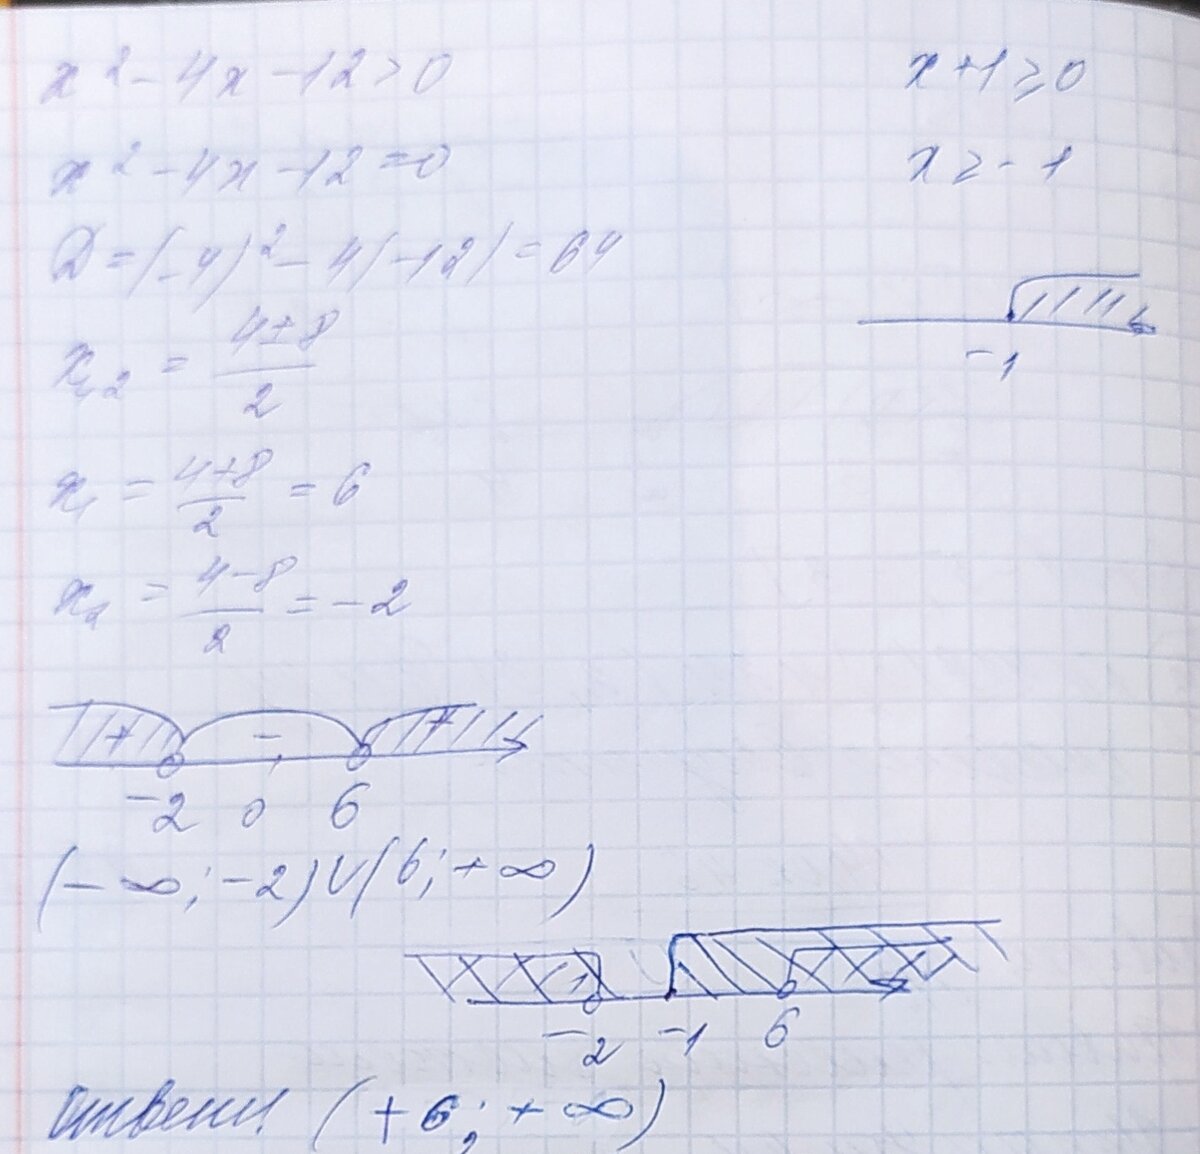 x² - 4x - 12 > 0
x² - 4x - 12 = 0
D = (-4)² - 4(-12) = 64
x₁,₂ = (4±8)/2
x₁ = (4+8)/2 = 6
x₂ = (4-8)/2 = -2
+ - +
-2 0 6
(-∞; -2)∪(6; +∞)
x + 1 ≥ 0
x ≥ -1
-1
-2 -1 6
Ответ (+6; +∞)